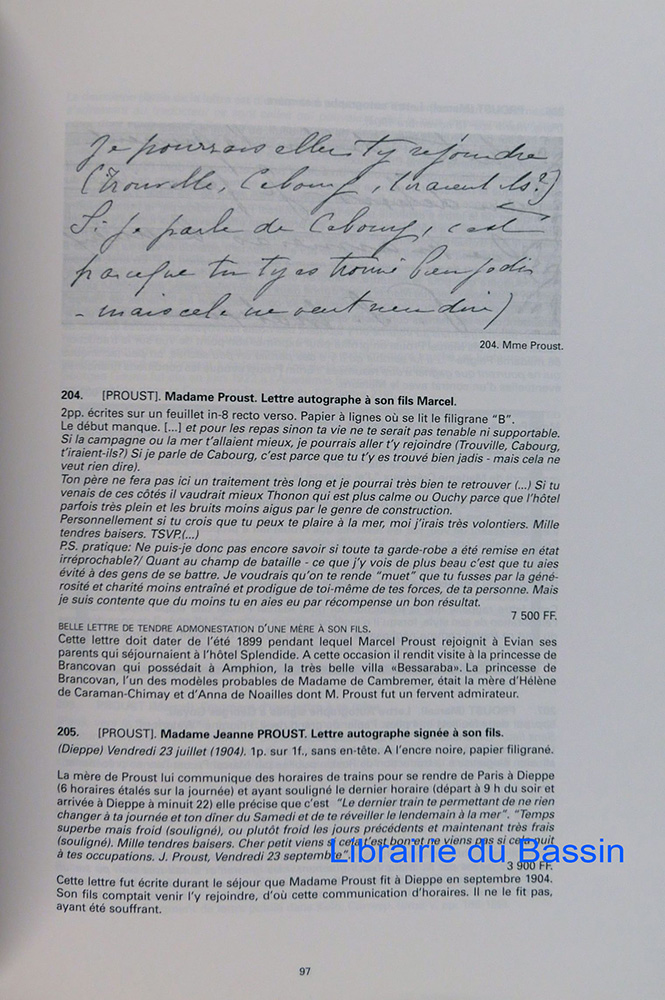 Je pourrais aller t'y rejoindre
(Trouville, Cabourg, t'iraient-ils?)
Si je parle de Cabourg, c'est
parceque tu t'y es trouvé bien jadis
- mais cela ne veut rien dire)
204. Mme Proust.
204. [PROUST]. Madame Proust. Lettre autographe à son fils Marcel.
2pp. écrites sur un feuillet in-8 recto verso. Papier à lignes où se lit le filigrane "B".
Le début manque. [...] et pour les repas sinon ta vie ne te serait pas tenable ni supportable.
Si la campagne ou la mer t'allaient mieux, je pourrais aller t'y rejoindre (Trouville, Cabourg,
t'iraient-ils?) Si je parle de Cabourg, c'est parce que tu t'y es trouvé bien jadis - mais cela ne
veut rien dire).
Ton père ne fera pas ici un traitement très long et je pourrai très bien te retrouver (...) Si tu
venais de ces côtés il vaudrait mieux Thonon qui est plus calme ou Ouchy parce que l'hôtel
parfois très plein et les bruits moins aigus par le genre de construction.
Personnellement si tu crois que tu peux te plaire à la mer, moi j'irais très volontiers. Mille
tendres baisers. TSVP.(...)
P.S. pratique: Ne puis-je donc pas encore savoir si toute ta garde-robe a été remise en état
irréprochable?/ Quant au champ de bataille - ce que j'y vois de plus beau c'est que tu aies
évité à des gens de se battre. Je voudrais qu'on te rende "muet" que tu fusses par la géné-
rosité et charité moins entraîné et prodigue de toi-même de tes forces, de ta personne. Mais
je suis contente que du moins tu en aies eu par récompense un bon résultat.
7 500 FF.
BELLE LETTRE DE TENDRE ADMONESTATION D'UNE MÈRE À SON FILS.
Cette lettre doit dater de l'été 1899 pendant lequel Marcel Proust rejoignit à Evian ses
parents qui séjournaient à l'hôtel Splendide. A cette occasion il rendit visite à la princesse de
Brancovan qui possédait à Amphion, la très belle villa «Bessaraba». La princesse de
Brancovan, l'un des modèles probables de Madame de Cambremer, était la mère d'Hélène
de Caraman-Chimay et d'Anna de Noailles dont M. Proust fut un fervent admirateur.
205. [PROUST]. Madame Jeanne PROUST. Lettre autographe signée à son fils.
(Dieppe) Vendredi 23 juillet (1904). 1p. sur 1f., sans en-tête. A l'encre noire, papier filigrané.
La mère de Proust lui communique des horaires de trains pour se rendre de Paris à Dieppe
(6 horaires étalés sur la journée) et ayant souligné le dernier horaire (départ à 9 h du soir et
arrivée à Dieppe à minuit 22) elle précise que c'est "Le dernier train te permettant de ne rien
changer à ta journée et ton dîner du Samedi et de te réveiller le lendemain à la mer". "Temps
superbe mais froid (souligné), ou plutôt froid les jours précédents et maintenant très frais
(souligné). Mille tendres baisers. Cher petit viens si cela t'est bon et ne viens pas si cela nuit
à tes occupations. J. Proust, Vendredi 23 septembre".
Librairie du Bassin
3 900 FF.
Cette lettre fut écrite durant le séjour que Madame Proust fit à Dieppe en septembre 1904.
Son fils comptait venir l'y rejoindre, d'où cette communication d'horaires. Il ne le fit pas,
ayant été souffrant.
97